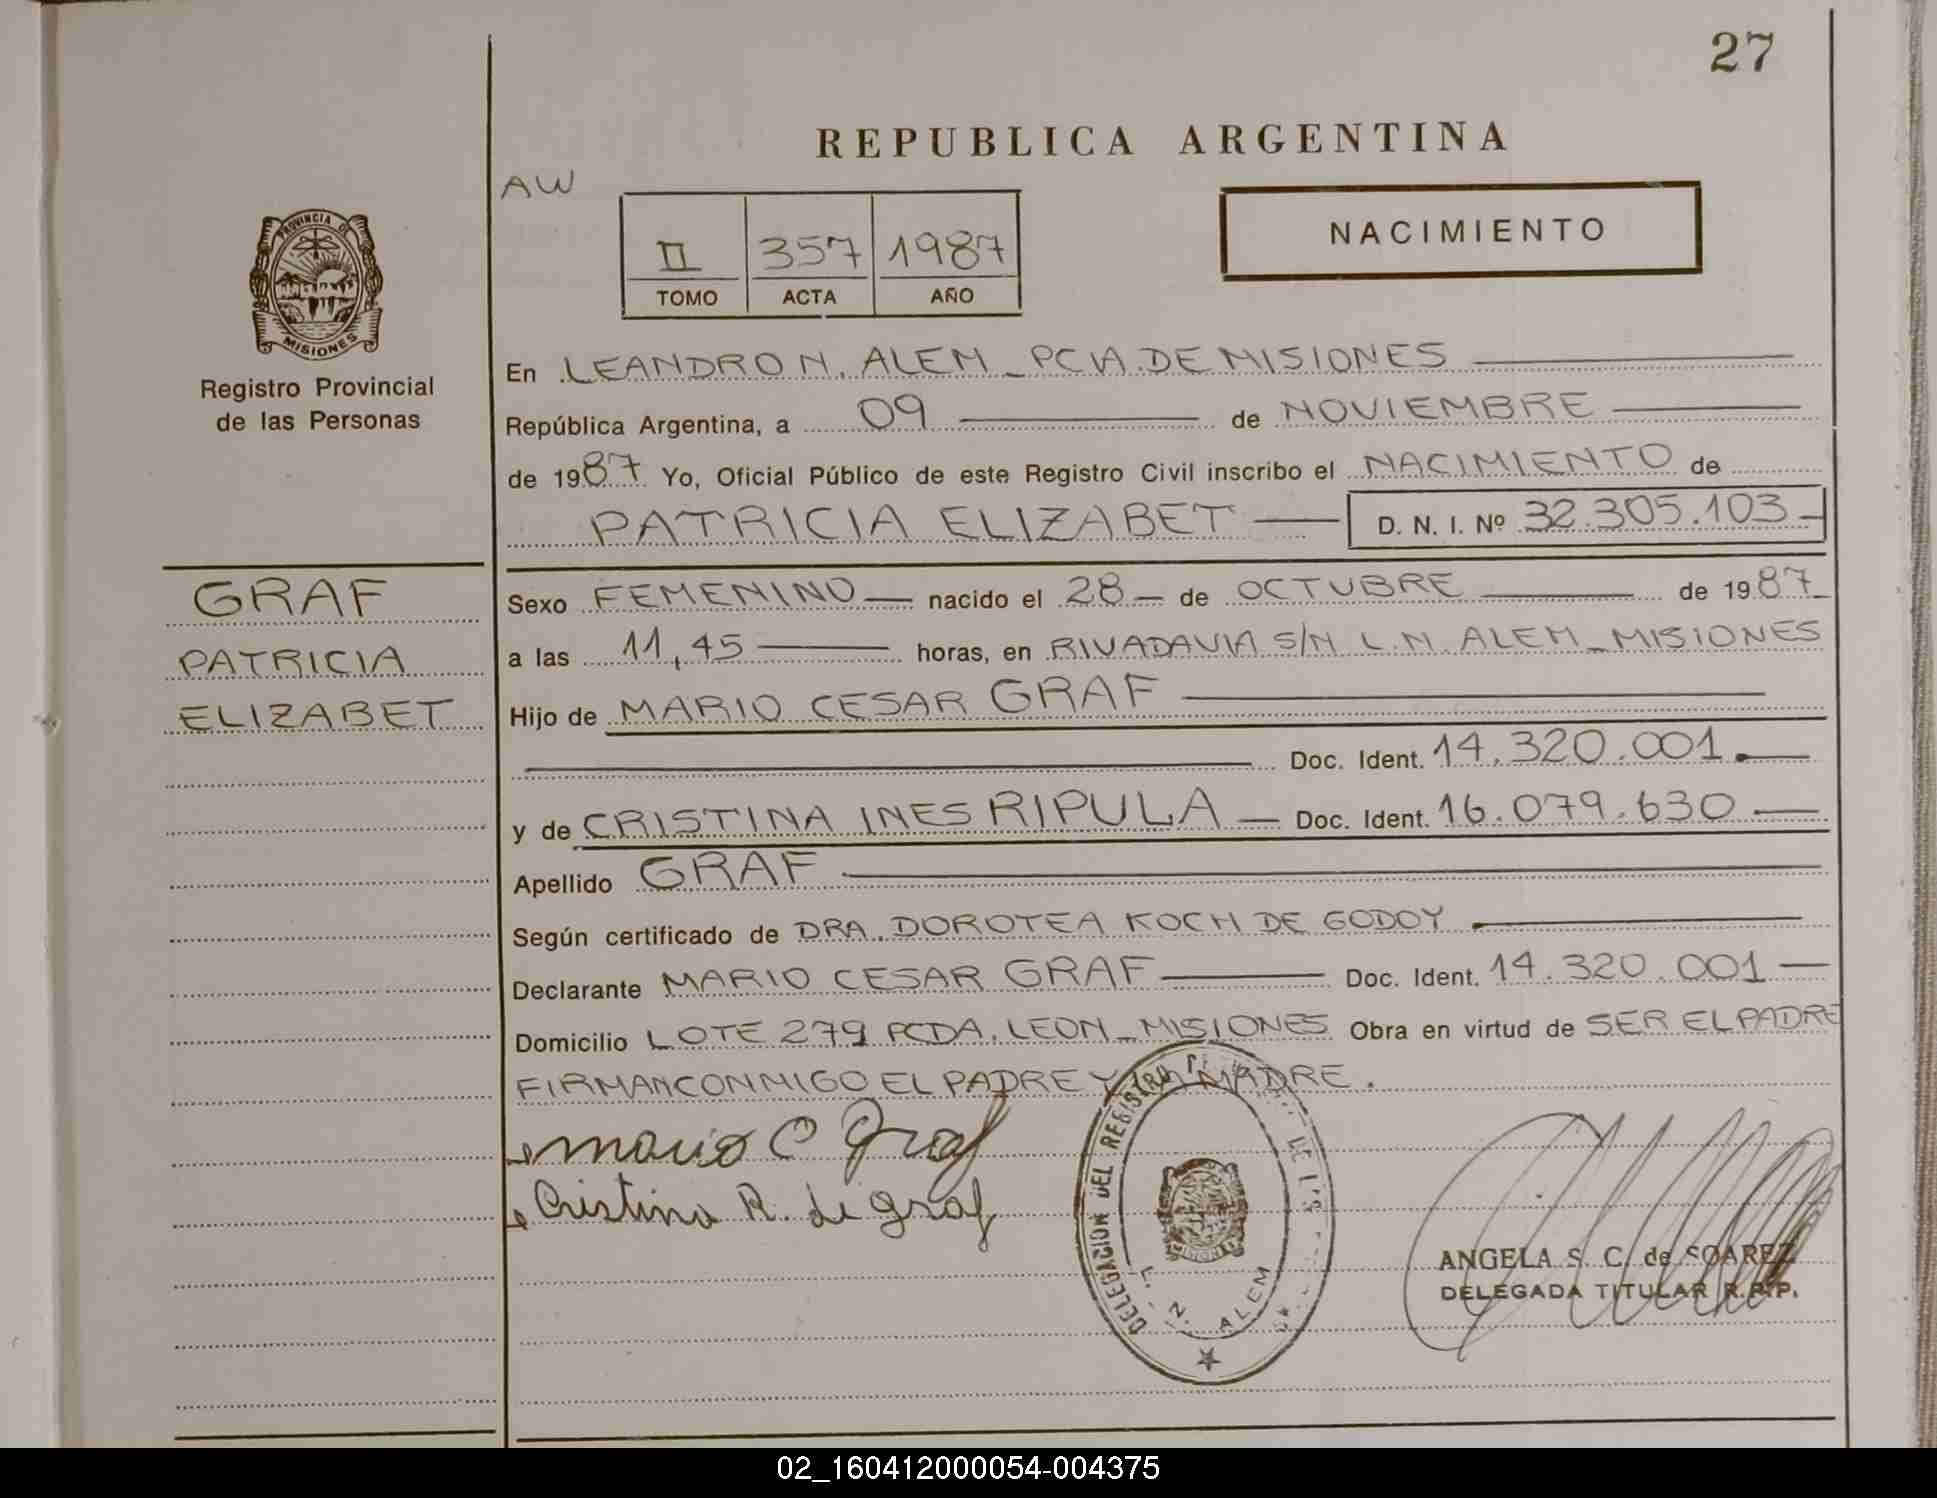 27
REPUBLICA ARGENTINA
AW
II 357 1987
TOMO ACTA AÑO
NACIMIENTO
PROVINCIA DE
MISIONES
Registro Provincial
de las Personas
En LEANDRO N. ALEM - PCIA. DE MISIONES
República Argentina, a 09 de NOVIEMBRE
de 1987 Yo, Oficial Público de este Registro Civil inscribo el NACIMIENTO de
PATRICIA ELIZABET D. N. I. Nº 32.305.103
GRAF
PATRICIA
ELIZABET
Sexo FEMENINO nacido el 28 de OCTUBRE de 1987
a las 11,45 horas, en RIVADAVIA S/N L.N. ALEM - MISIONES
Hijo de MARIO CESAR GRAF
Doc. Ident. 14.320.001.
y de CRISTINA INES RIPULA Doc. Ident. 16.079.630
Apellido GRAF
Según certificado de DRA. DOROTEA KOCH DE GODOY
Declarante MARIO CESAR GRAF Doc. Ident. 14.320.001
Domicilio LOTE 279 PCDA. LEON - MISIONES Obra en virtud de SER EL PADRE
FIRMAN CONMIGO EL PADRE Y LA MADRE.
Mario C Graf
Cristina R. de Graf
DELEGACION DEL REGISTRO
L. N. ALEM
ANGELA S. C. de SOAREZ
DELEGADA TITULAR R.P.P.
02_160412000054-004375